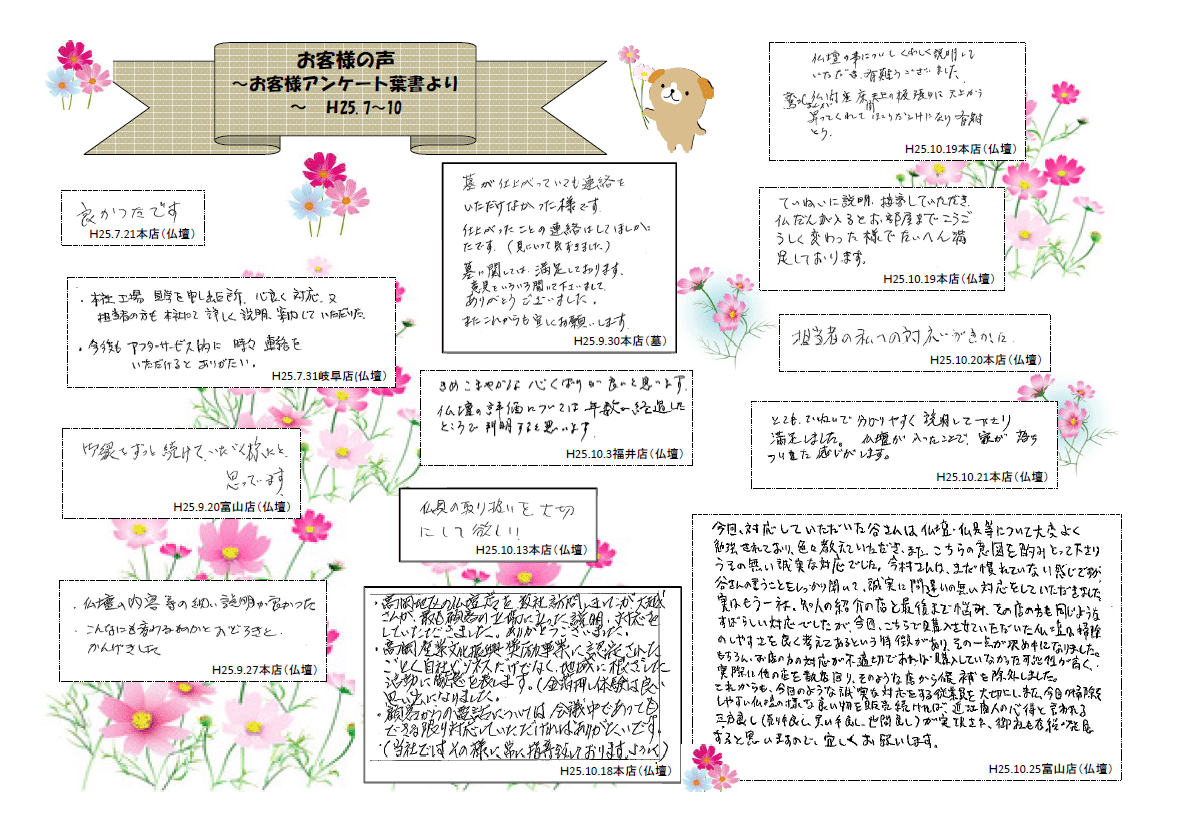 お客様の声
～お客様アンケート葉書より
～　H25.7～10
良かったです
H25.7.21本店（仏壇）
・本社工場 見学を申し出た所、心良く対応、又
担当者の方も本社にて詳しく説明、案内していただけた。
・今後も アフターサービス的に 時々 連絡を
いただけると ありがたい。
H25.7.31岐阜店（仏壇）
ずっと続けていただく様にと、
思っています
H25.9.20富山店（仏壇）
・仏壇の内容等の細い説明が良かった
・こんなにも かわるものかと おどろきと
かんげきした
H25.9.27本店（仏壇）
墓が仕上がっていても連絡を
いただけなかった様です。
仕上がったことの連絡はしてほしかっ
たです。（見にいって気ずきました）
墓に関しては、満足しております。
意見をいろいろ聞いて下さいまして
ありがとうございました。
またこれからも宜しくお願いします。
H25.9.30本店（墓）
きめこまやかな 心くばりが良いと思います。
仏壇の評価については 年数の経過した
ところで 判明すると思います。
H25.10.3福井店（仏壇）
仏具の取り扱いを大切
にして欲しい
H25.10.13本店（仏壇）
・高岡地区の仏壇店を数社訪問しましたが、大越
さんが、最も顧客の立場に立った説明・対応を
していただきました。ありがとうございました。
・高岡産業文化振興奨励事業に認定された
ごとく自社ビジネスだけでなく、地域に根ざした
活動に敬意を表します。（金箔押し体験は良い
思い出になりました。
・顧客からの電話については、会議中であっても
できる限り対応していただければありがたいです。
（当社ではその様に常に指導致しております。ように）
H25.10.18本店（仏壇）
仏壇の事について くわしく説明して
いただき、有難うございました。
H25.10.19本店（仏壇）
ていねいに説明、接客していただき
仏だんが入るとお部屋までこうご
うしく変わった様でたいへん満
足しております。
H25.10.19本店（仏壇）
担当者の私への対応がきめに
H25.10.20本店（仏壇）
とても、ていねいで 分かりやすく 説明して下さり
満足しました。 仏壇が 入ったことで、家が 落ち
ついた 感じがします。
H25.10.21本店（仏壇）
今回、対応していただいた谷さんは 仏壇・仏具等について大変よく
勉強されており、色々教えていただき、また、こちらの意図を酌みとって下さり
うその無い誠実な対応でした。今村さんは、まだ慣れていない感じですが、
谷さんの言うことをしっかり聞いて、誠実に間違いの無い対応をしていただきました。
実はもう一社、知人の紹介の店と最後まで悩み、その店の方も同じような
すばらしい対応でしたが、今回、こちらで購入させていただいた仏壇は掃除
のしやすさを良く考えてあるという特徴があり、その一点が決め手になりました。
もちろん、お店の方の対応が不適切であれば購入していなかった可能性が高く、
実際に他の店を数店回り、そのような店から候補を除外しました。
これからも、今回のような誠実な対応をする従業員を大切にし、また、今回の掃除を
しやすい仏壇の様な良い物を販売し続ければ、近江商人の心得と言われる
三方良し（売り手良し、買い手良し、世間良し）が実現され、御社も存続・発展
すると思いますので、宜しくお願いします。
H25.10.25富山店（仏壇）